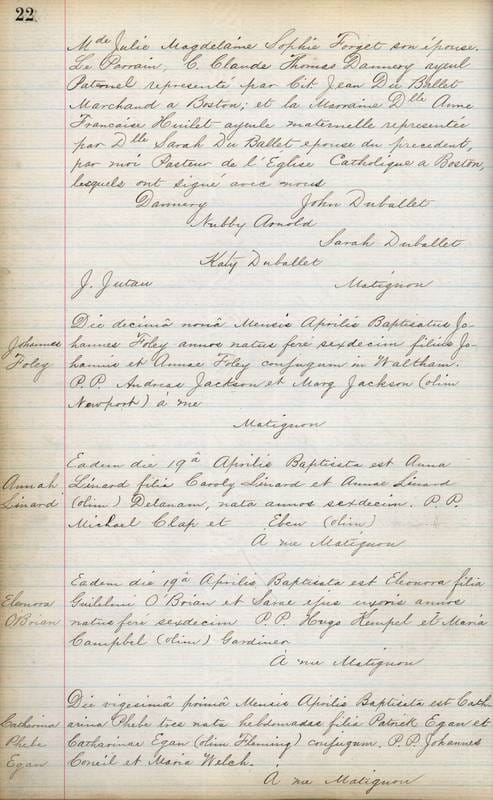 22
Mde Julie Magdelaine Sophie Forget son épouse.
Le Parrain, C. Claude Thomas Dannery ayeul
Paternel representé par Cit. Jean Du Ballet
Marchand a Boston; et la Marraine Dlle Anne
Francaise Huilet ayeule maternelle representée
par Dlle Sarah Du Ballet epouse du precedent,
par moi Pasteur de l'Eglise Catholique a Boston,
lesquels ont signé avec nous
Dannery John Duballet
Nubby Arnold
Sarah Duballet
Katy Duballet
J. Jutau Matignon
Johannes
Foley
Die decimâ nonâ Mensis Aprilis Baptisatus Jo-
hannes Foley annos natus fere sexdecim filius Jo-
hannis et Annae Foley conjugum in Waltham.
P.P. Andreas Jackson et Marg Jackson (olim
Newport) á me
Matignon
Annah
Linard
Eadem die 19â Aprilis Baptisata est Anna
Linard filia Caroly Linard et Annae Linard
(olim) Delanam, nata annos sexdecim. P.P.
Michael Clap et Eben (olim)
A me Matignon
Eleonora
O'Brian
Eadem die 19â Aprilis Baptisata est Eleonora filia
Guilelmi O'Brian et Sarae ejus uxoris annos
natus fere sexdecim P.P. Hugo Hempel et Maria
Campbel (olim) Gardiner
À me Matignon
Catharina
Phebe
Egan
Die vigesimâ primâ Mensis Aprilis Baptisata est Cath-
arina Phebe tres nata hebdomadas filia Patrick Egan et
Catharinae Egan (olim Fleming) conjugum. P.P. Johannes
Coneil et Maria Welch.
A me Matignon